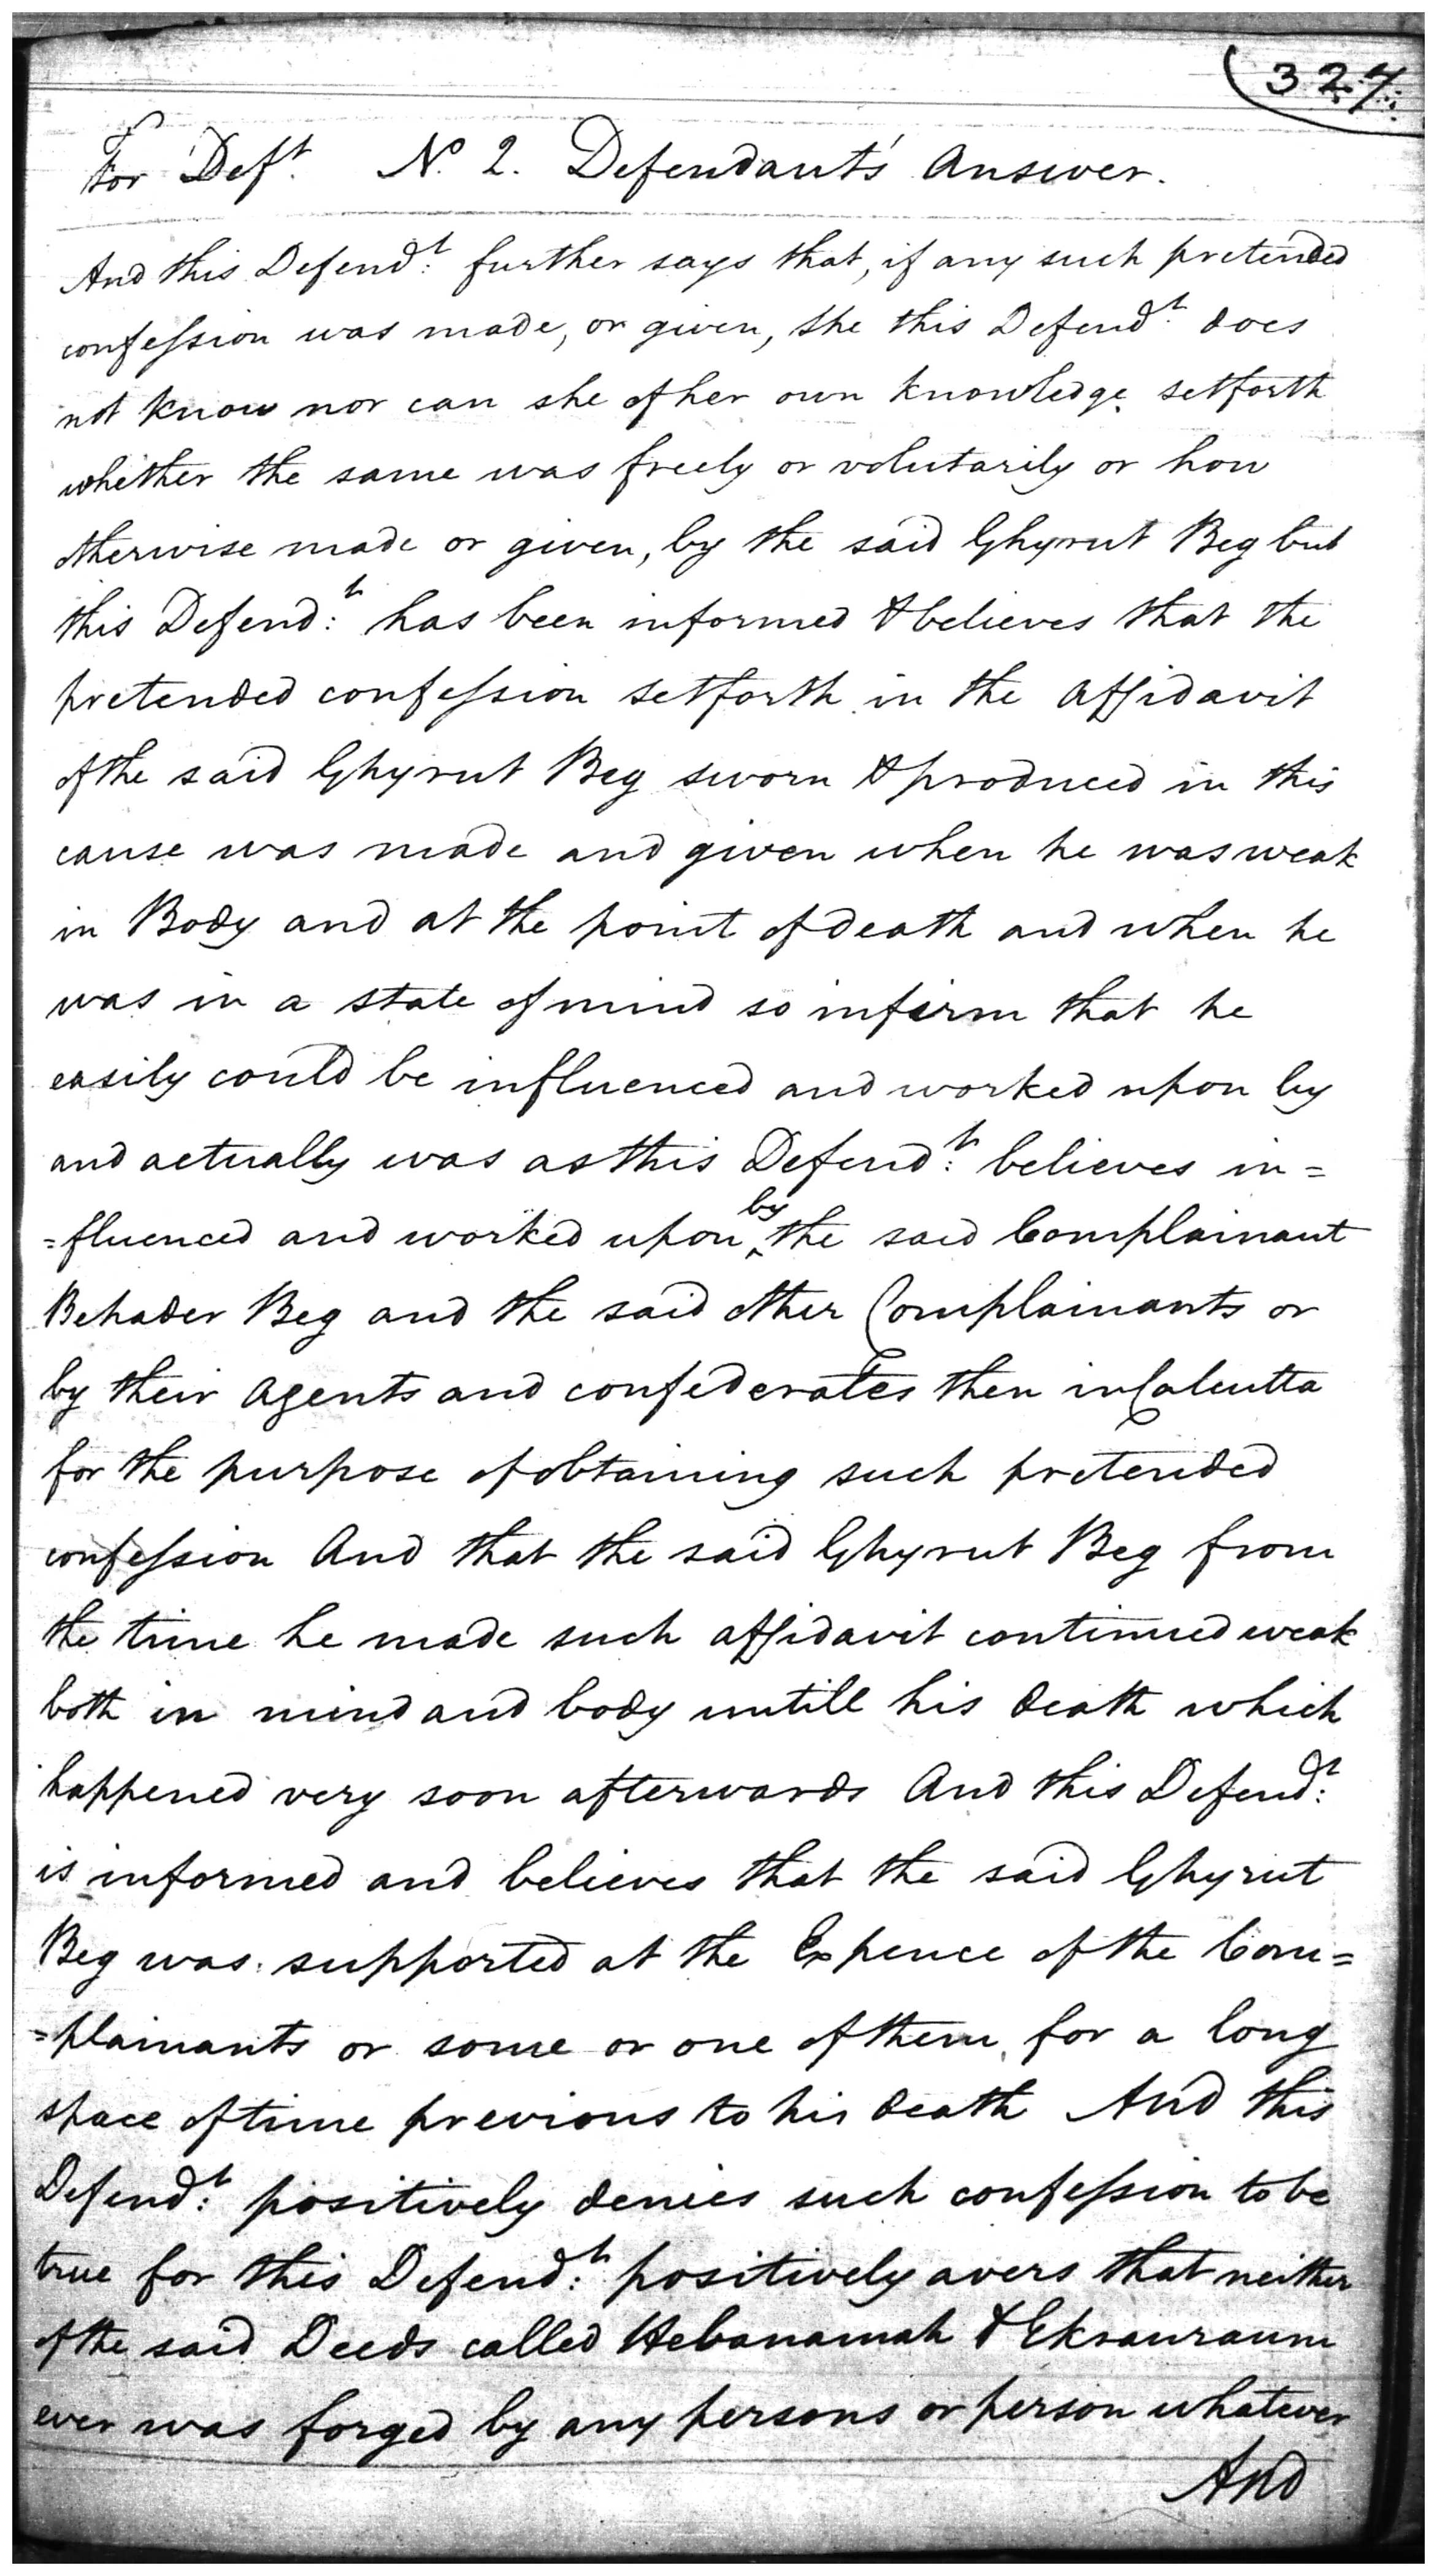 327.
For Def.t No. 2. Defendant's Answer.
And this Defend:t further says that, if any such pretended
confession was made, or given, she this Defend:t does
not know nor can she of her own knowledge setforth
whether the same was freely or volutarily or how
otherwise made or given, by the said Ghyrut Beg but
this Defend:t has been informed & believes that the
pretended confession setforth in the Affidavit
of the said Ghyrut Beg sworn & produced in this
cause was made and given when he was weak
in Body and at the point of death and when he
was in a state of mind so infirm that he
easily could be influenced and worked upon by
and actually was as this Defend:t believes in=
=fluenced and worked upon by the said Complainant
Behader Beg and the said other Complainants or
by their Agents and confederates then in Calcutta
for the purpose of obtaining such pretended
confession And that the said Ghyrut Beg from
the time he made such affidavit continued weak
both in mind and body untill his death which
happened very soon afterwards And this Defend:t
is informed and believes that the said Ghyrut
Beg was supported at the Expence of the Com=
=plainants or some or one of them, for a long
space of time previous to his death And this
Defend:t positively denies such confession to be
true for this Defend:t positively avers that neither
of the said Deeds called Hebanamah & Ekrauraum
ever was forged by any persons or person whatever
And